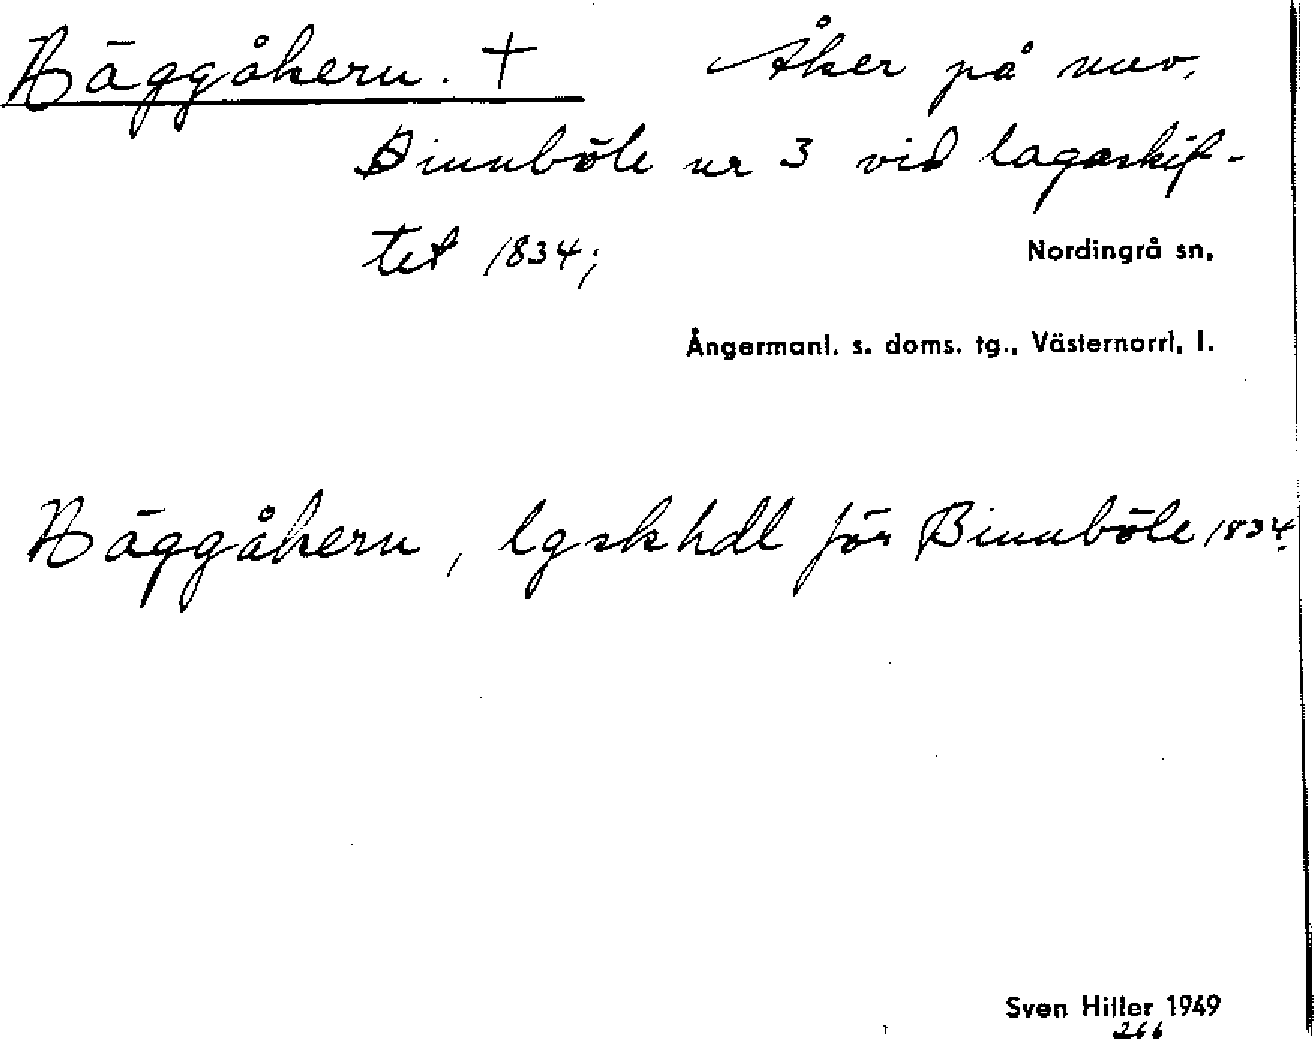 Häggåkern. † Åker på nuv.
Binnböle nr 3 vid lagaskif-
tet 1834;
Nordingrå sn.
Ångermanl. s. doms. tg., Västernorrl. l.
Häggåkern, lgskhdl för Binnböle 1834.
Sven Hiller 1949
266